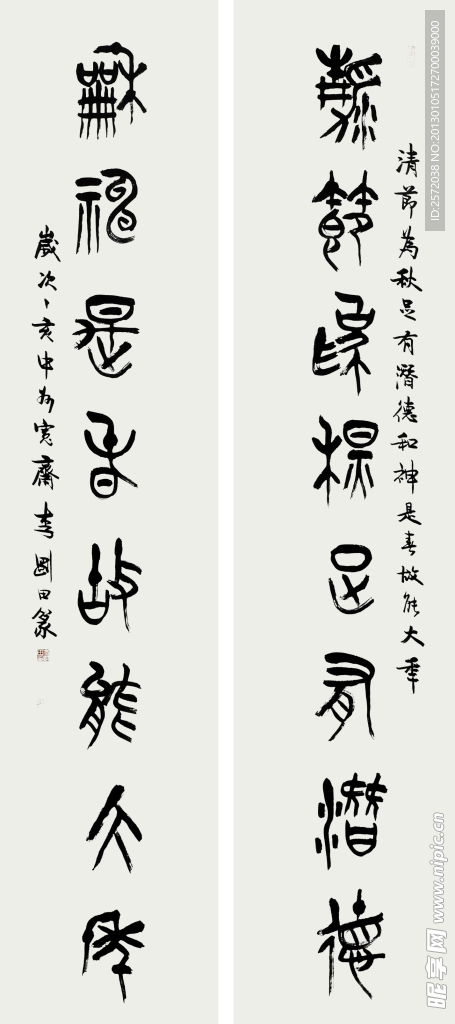 清節為秋足有潛德和神是春故能大年
節為秋足有潛德
龢神是春故能大年
歲次亥中州寬齋李剛田篆
ID:2572038 NO:20130105172700039000
昵享网 www.nipic.cn